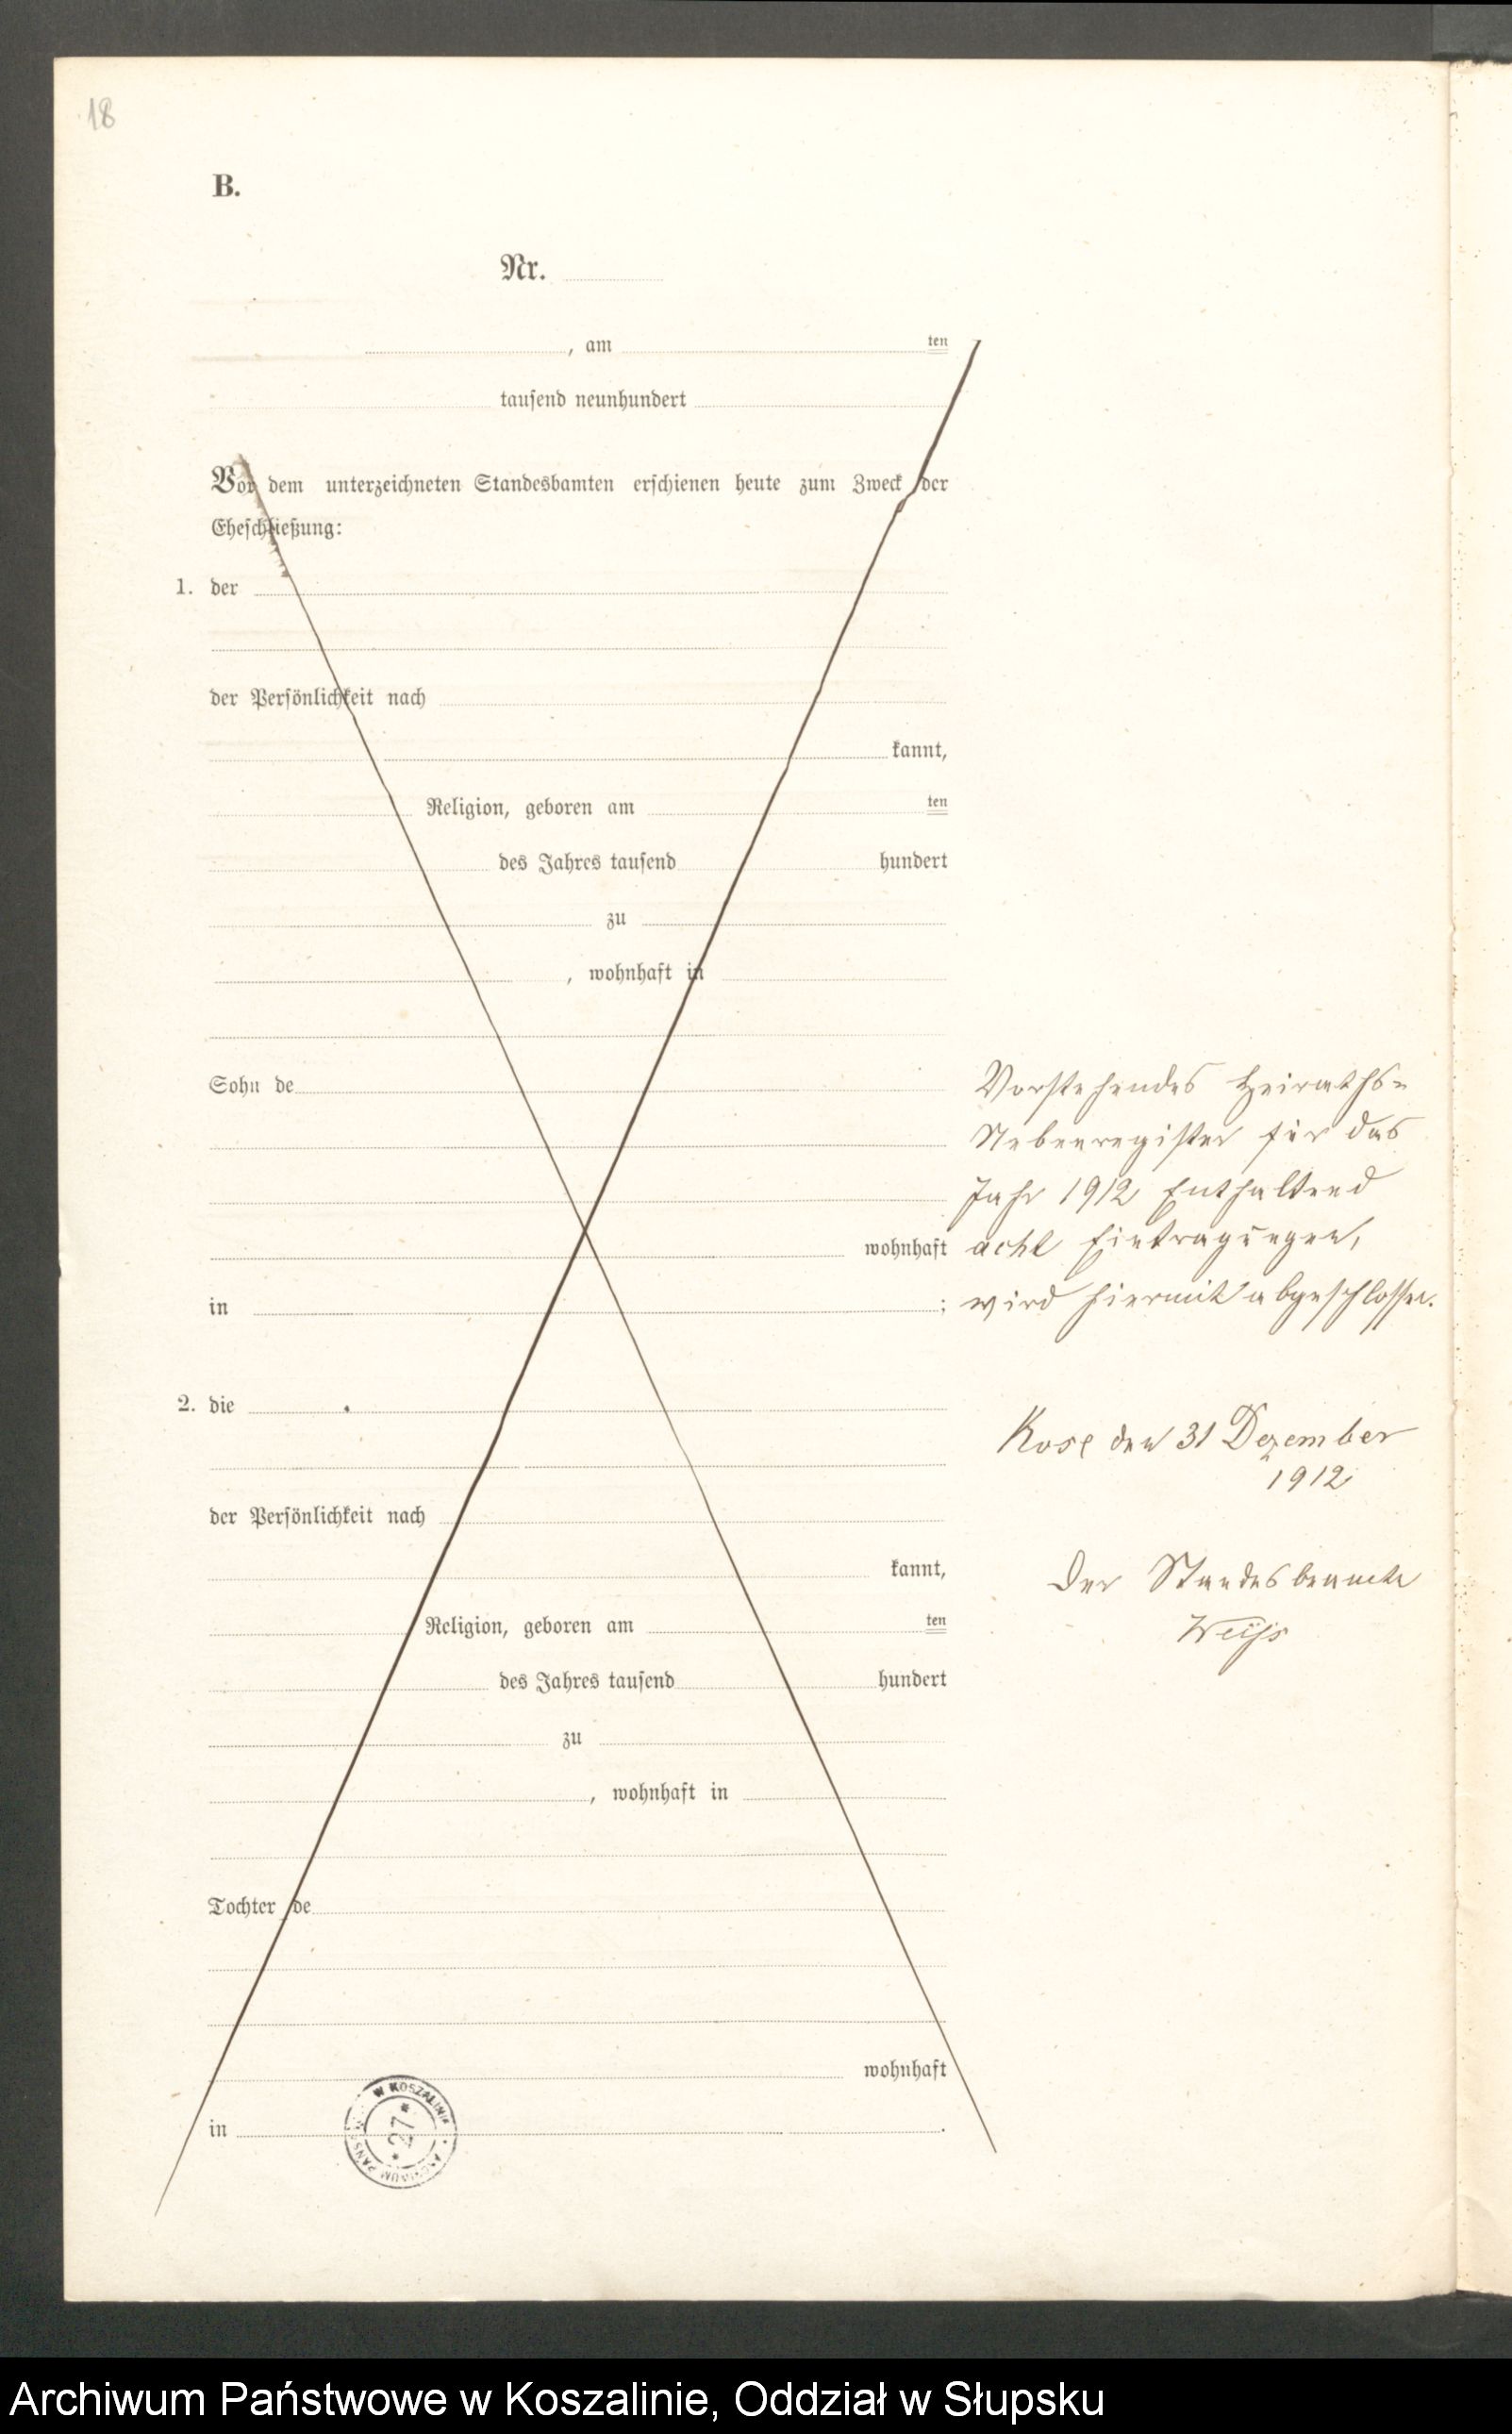 18
B.
Nr.
, am ten
tausend neunhundert
Vor dem unterzeichneten Standesbamten erschienen heute zum Zweck der
Eheschließung:
1. der
der Persönlichkeit nach
kannt,
Religion, geboren am ten
des Jahres tausend hundert
zu
, wohnhaft in
Sohn de
wohnhaft
in ;
2. die
der Persönlichkeit nach
kannt,
Religion, geboren am ten
des Jahres tausend hundert
zu
, wohnhaft in
Tochter de
wohnhaft
in .
Vorstehendes Heiraths-
Nebenregister für das
Jahr 1912 Enthaltend
acht Eintragungen,
wird hiermit abgeschlossen.
Kose den 31 Dezember
1912
Der Standesbeamte
Weiß
W KOSZALINIE
* 27 *
ARCHIWUM PAŃSTW.
Archiwum Państwowe w Koszalinie, Oddział w Słupsku